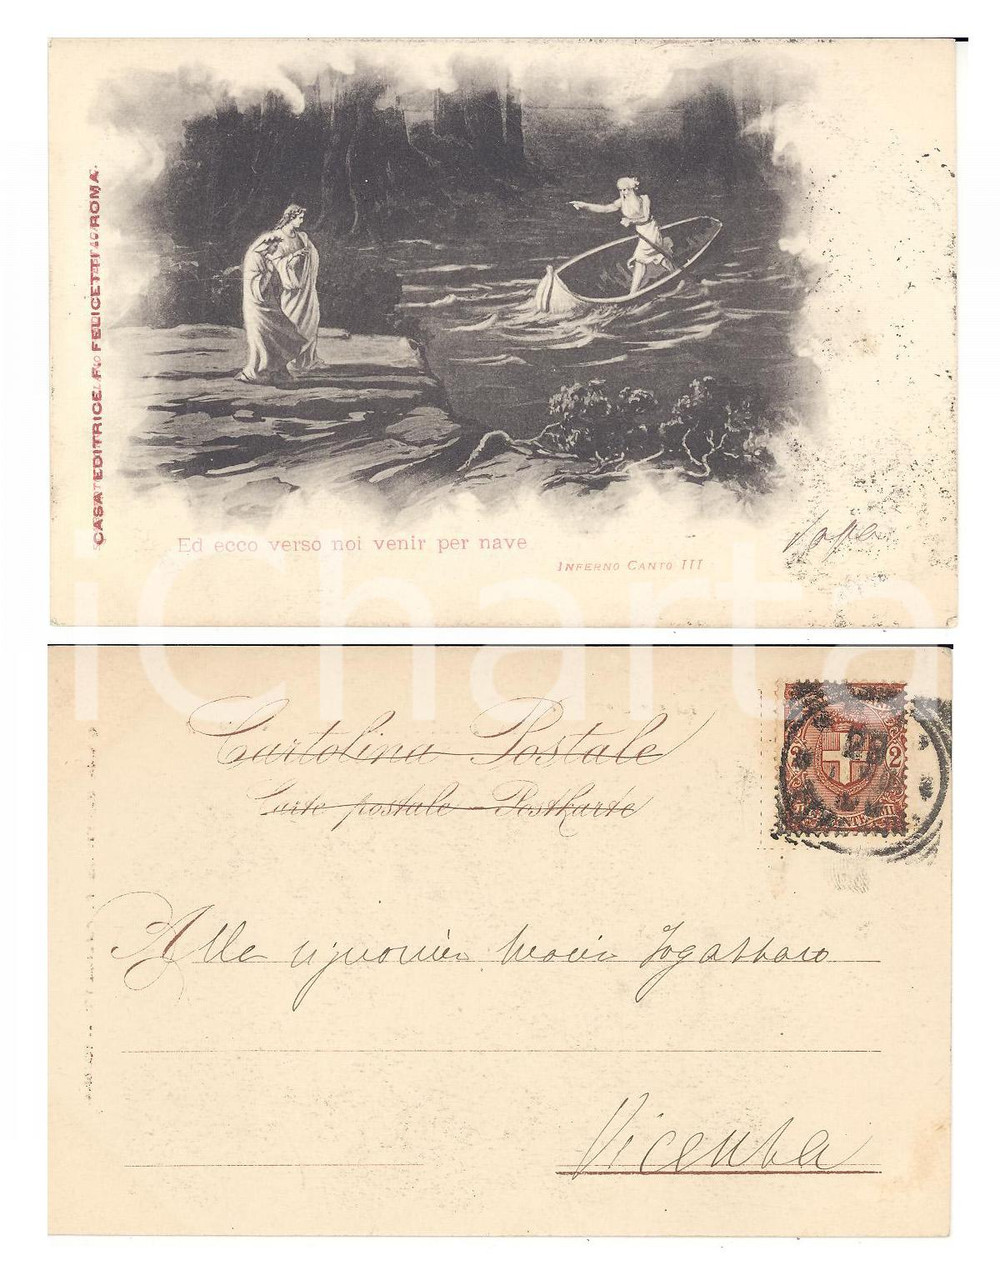 CASA EDITRICE F. FELICETTI ROMA
Ed ecco verso noi venir per nave
INFERNO CANTO III
iCharta
Cartolina Postale
Carte postale - Postkarte
2 2
Alla signorina Maria Fogazzaro
Vicenza